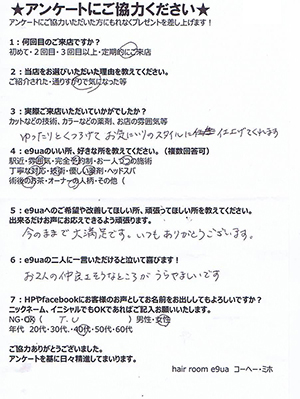 ★アンケートにご協力ください★
アンケートにご協力いただいた方にもれなくプレゼントを差し上げます!
1:何回目のご来店ですか?
初めて・2回目・3回目以上・定期的にご来店
2:当店をお選びいただいた理由を教えてください。
ご紹介された・通りすがりで気になった等
3:実際ご来店いただいていかがでしたか?
カットなどの技術、カラーなどの薬剤、お店の雰囲気等
ゆったりとくつろげて お気にいりのスタイルに仕上げてくれます
4:e9uaのいい所、好きな所を教えてください。(複数回答可)
駅近・雰囲気・完全予約制・お一人づつの施術
丁寧な対応・技術・優しい薬剤・ヘッドスパ
術後のお茶・オーナーの人柄・その他(
5:e9uaへのご希望や改善してほしい所、頑張ってほしい所を教えてください。
出来るだけお声にお応えできるよう頑張ります。
今のままで大満足です。いつもありがとうございます。
6:e9uaの二人に一言いただけると泣いて喜びます!
お2人の仲良さそうなところが うらやましいです
7:HPやfacebookにお客様のお声としてお名前をお出ししてもよろしいですか?
ニックネーム、イニシャルでもOKであればご記入お願いいたします。
NG・OK( T.U )男性・女性
年代 20代・30代・40代・50代・60代
ご協力ありがとうございました。
アンケートを基に日々精進してまいります。
hair room e9ua コーヘー・ミホ